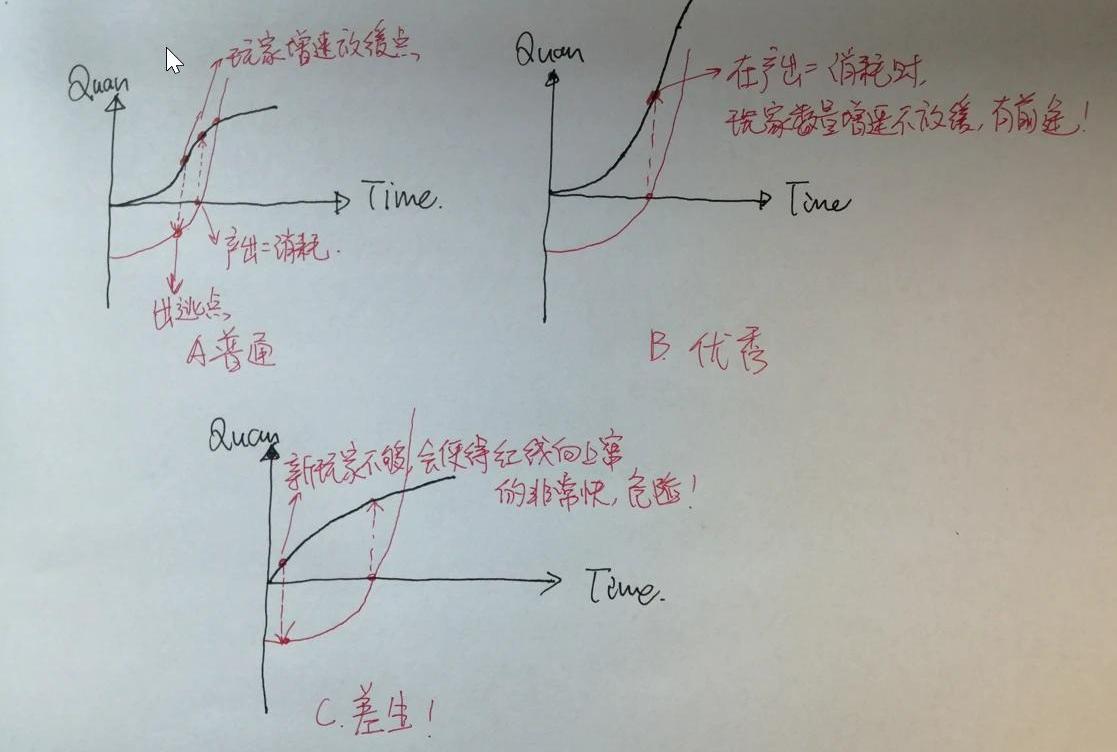 Quan
玩家增速放缓点
Time.
产出=消耗.
出逃点
A.普通
Quan
在产出=消耗时,
玩家数量增速不放缓,有前途!
Time
B. 优秀
Quan
新玩家不够,会使得红线向上窜
的非常快,危险!
Time.
C.差生!